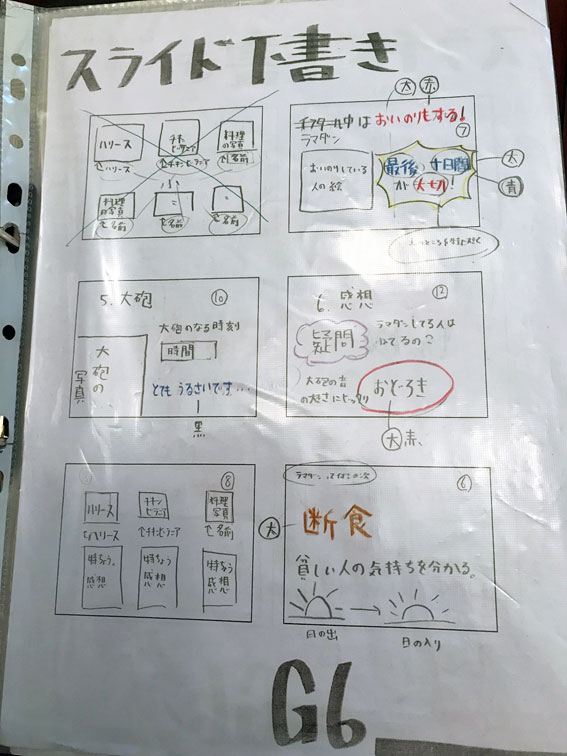 スライド下書き
ハリース
↑ハリース
チキン
ビラニア
↑チキンビラニア
料理
の写真
↑名前
料理
の写真
↑名前
↑名前
↑名前
太 赤
中は おいのりもする! ⑦
ラマダン
おいのりしている
人の絵
最後、十日間
が 大切!
太
青
5. 大砲 ⑩
大砲の
写真
大砲のなる時刻
時間
とてもうるさいです…
黒
6. 感想 ⑫
疑問
ラマダンしてる人は
ねてるの?
大砲の音
の大きさにビックリ
おどろき
太 赤
⑧
ハリース
↑ハリース
特ちょう
感想
チキン
ビラニア
↑チキンビラニア
特ちょう
感想
料理
写真
↑名前
特ちょう
感想
⑥
太
断食
貧しい人の気持ちを分かる。
日の出
日の入り
G6